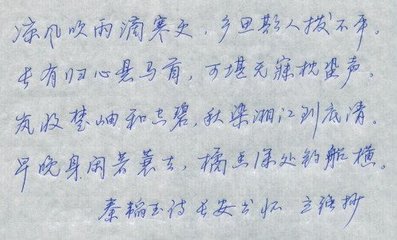 凉风吹雨滴寒更，乡思欺人拨不平。
长有归心悬马首，可堪无寐枕蛩声。
岚收楚岫和空碧，秋染湘江到底清。
早晚身闲着蓑去，橘香深处钓船横。
秦韬玉诗 长安书怀 抄